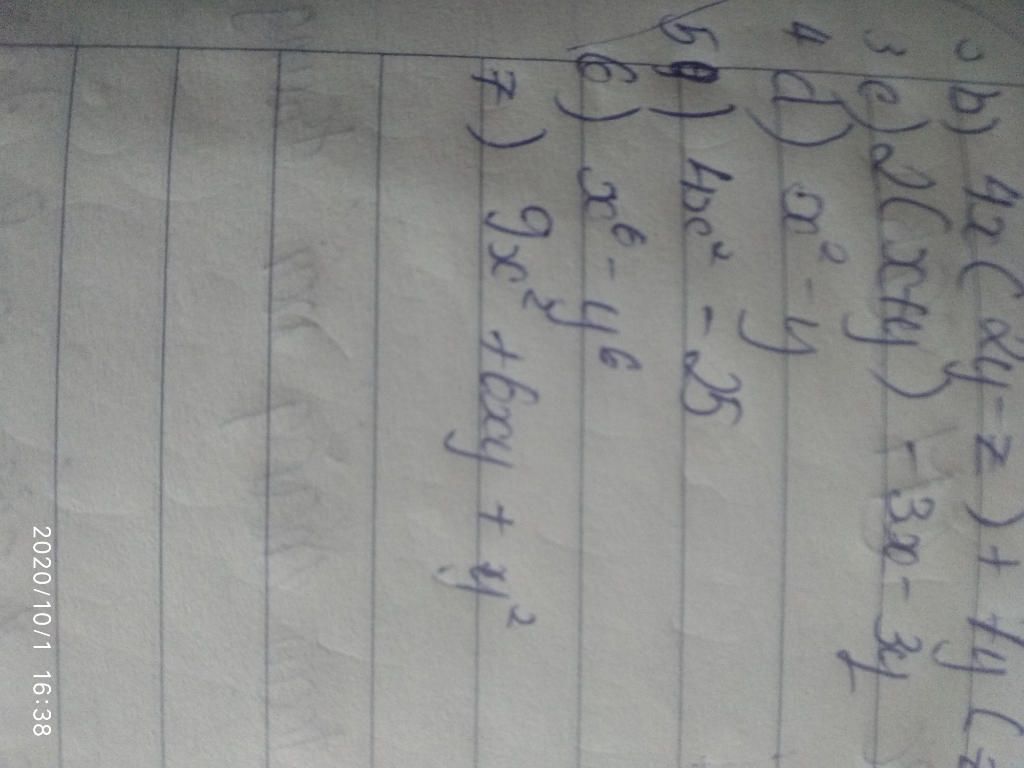 b) 4x(2y-z) + 7y(
3 c) 2(x+y) - 3x - 3y
4 d) x² - y
5) 4x² - 25
6) x⁶ - y⁶
7) 9x² + 6xy + y²
2020/10/1 16:38